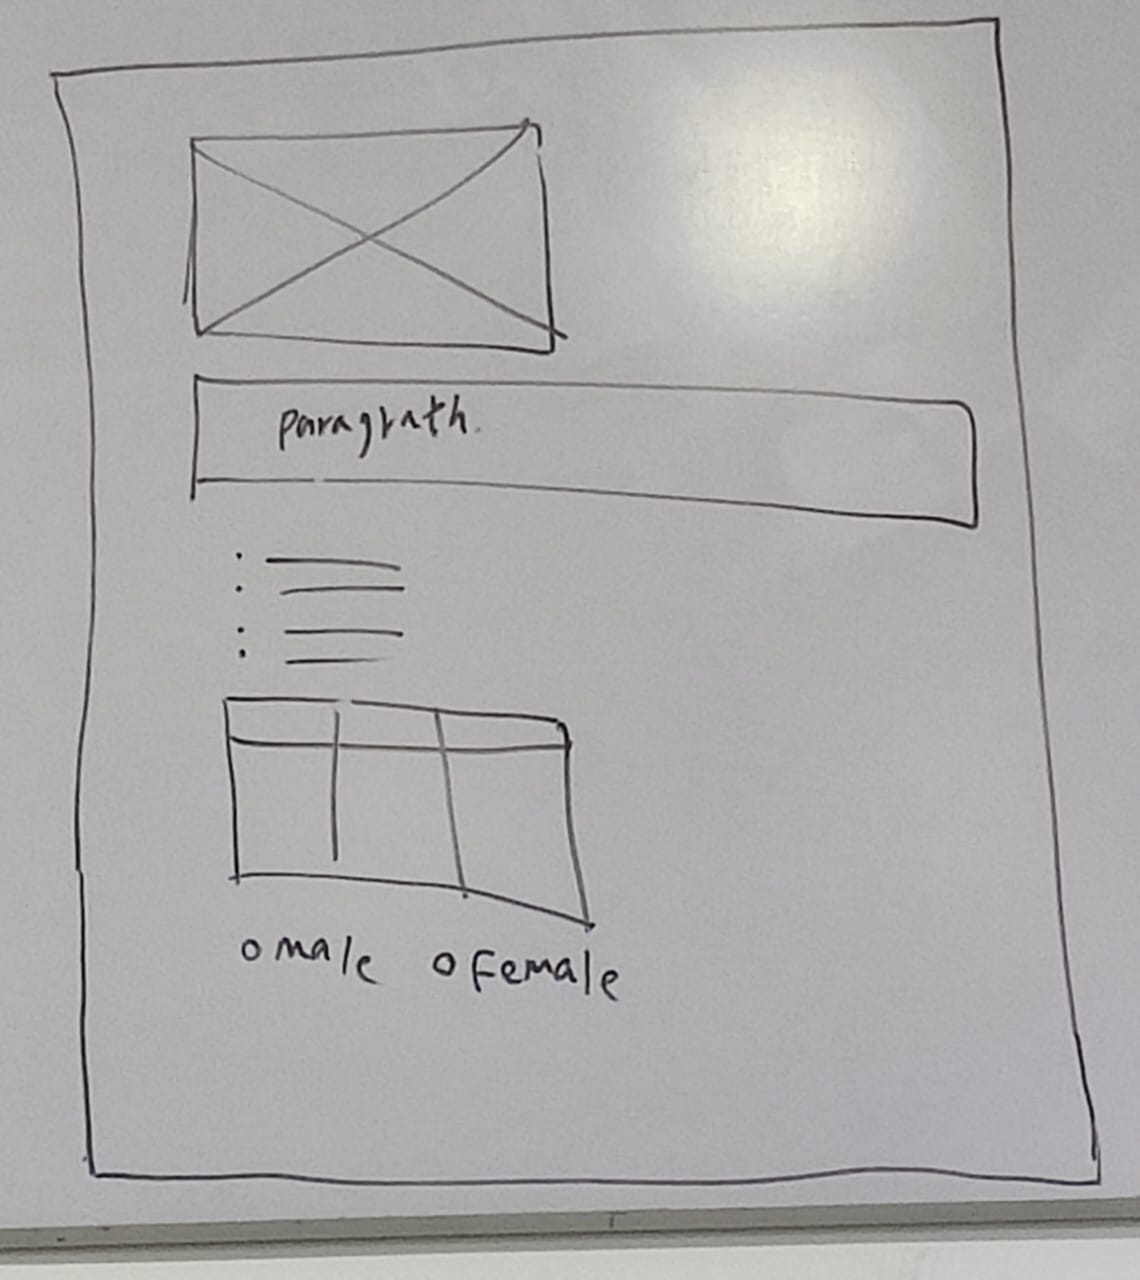 paragrath.
male Female